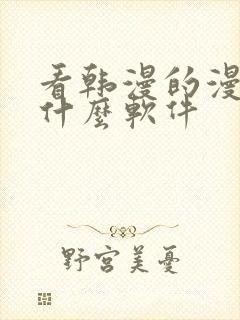 看韩漫的漫
什麼軟件
野宮美憂